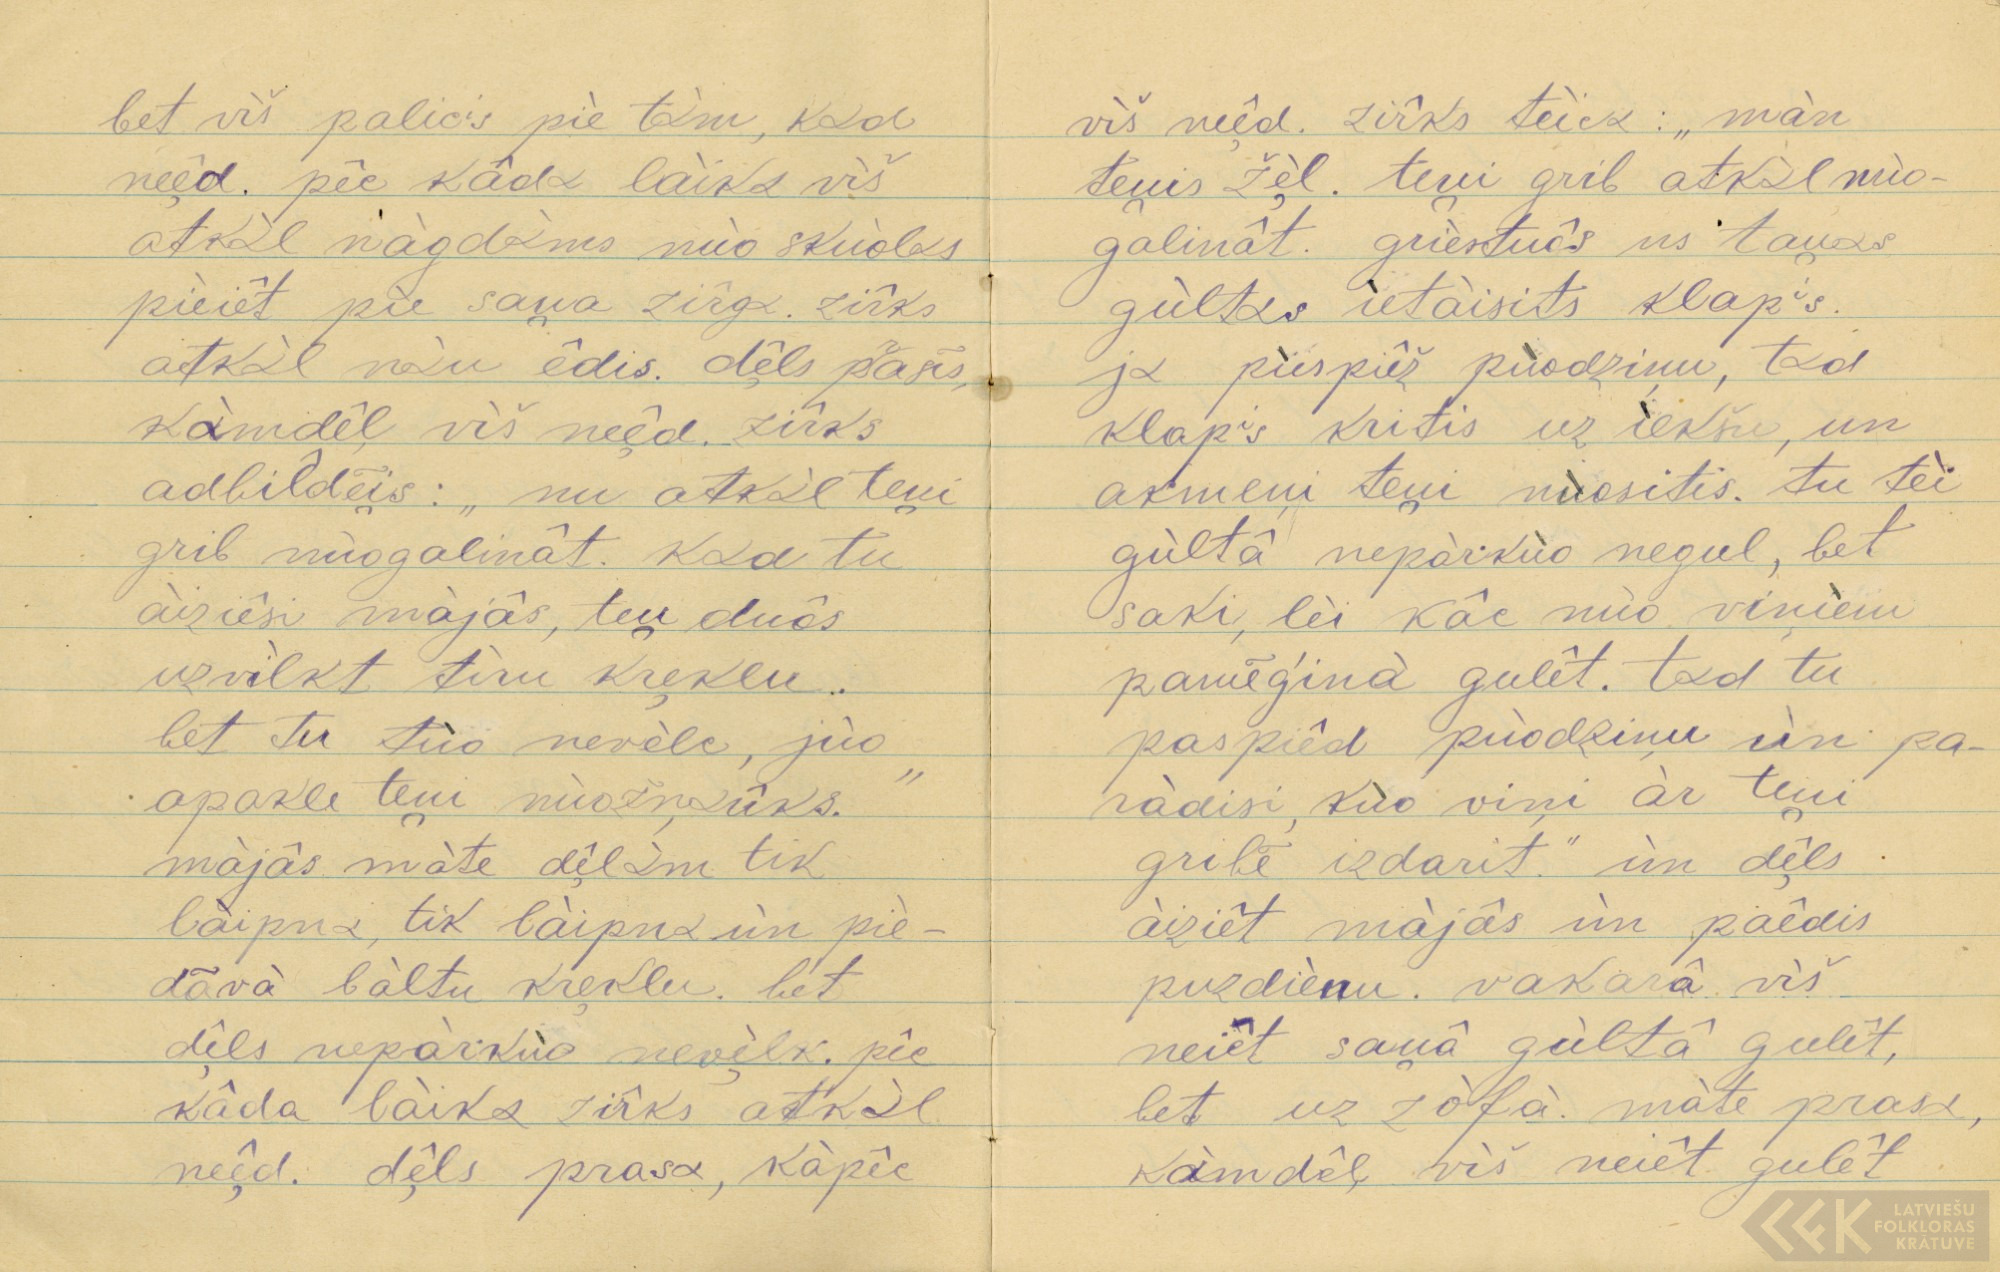 bet vìš palicis pìe tɑ̀m, kɑd
neȩ̂d. pêc kâdɑ làikɑ vìš
atkɑ̀l nàgdɑ̀ms nùo skùolɑs
pìeiêt pìe sau̯a zir̂gɑ. zir̂ks
atkɑ̀l nɑ̀u êdis. dȩ̂ls pàšis,
kàmdêļ vìš neȩ̂d. zir̂ks
adbil̂dēi̯s: „nu atkɑ̀l teu̯i
grib nùogalinât. kɑd tu
àiziêsi màjâs, teu̯ duôs
uzvìlkt tìru krȩklu.
bet tu tùo nevèlc, jùo
apakle teu̯i nùožņɑûks."
màjâs màte dȩ̂lɑ̀m tik
làipnɑ, tik làipnɑ ùn pìe-
dāvà bàltu krȩklu. bet
dȩ̂ls nepàrkùo nevȩ̀lk. pêc
kâda làikɑ zir̂ks atkɑ̀l
neȩ̂d. dȩ̂ls prasɑ, kàpêc
vìš neȩ̂d. zir̂ks tèicɑ: „màn
teu̯is žȩ̀l. teu̯i grib atkɑ̀l nùo-
galinât. grìestuôs us tau̯ɑs
gùltɑs ìetàisits klapis.
jɑ pìespiêž pùodziņu, tɑd
klapis kritis uz ìekšu, un
akmeņi teu̯i nùositis. tu tèi
gùltâ nepàrkùo negul, bet
saki, lèi kâc nùo viņìem
pamēģinà gulêt. tɑd tu
paspiêd pùodziņu ùn pa-
ràdisi, kùo viņi àr teu̯i
gribē izdarit." ùn dȩ̂ls
àiziêt màjâs ùn paêdis
puzdìenu. vakarâ vìš
neiêt sau̯â gùltâ gulêt,
bet uz zòfà. màte prasɑ,
kàmdêļ vìš neiêt gulêt
LATVIEŠU
FOLKLORAS
KRĀTUVE